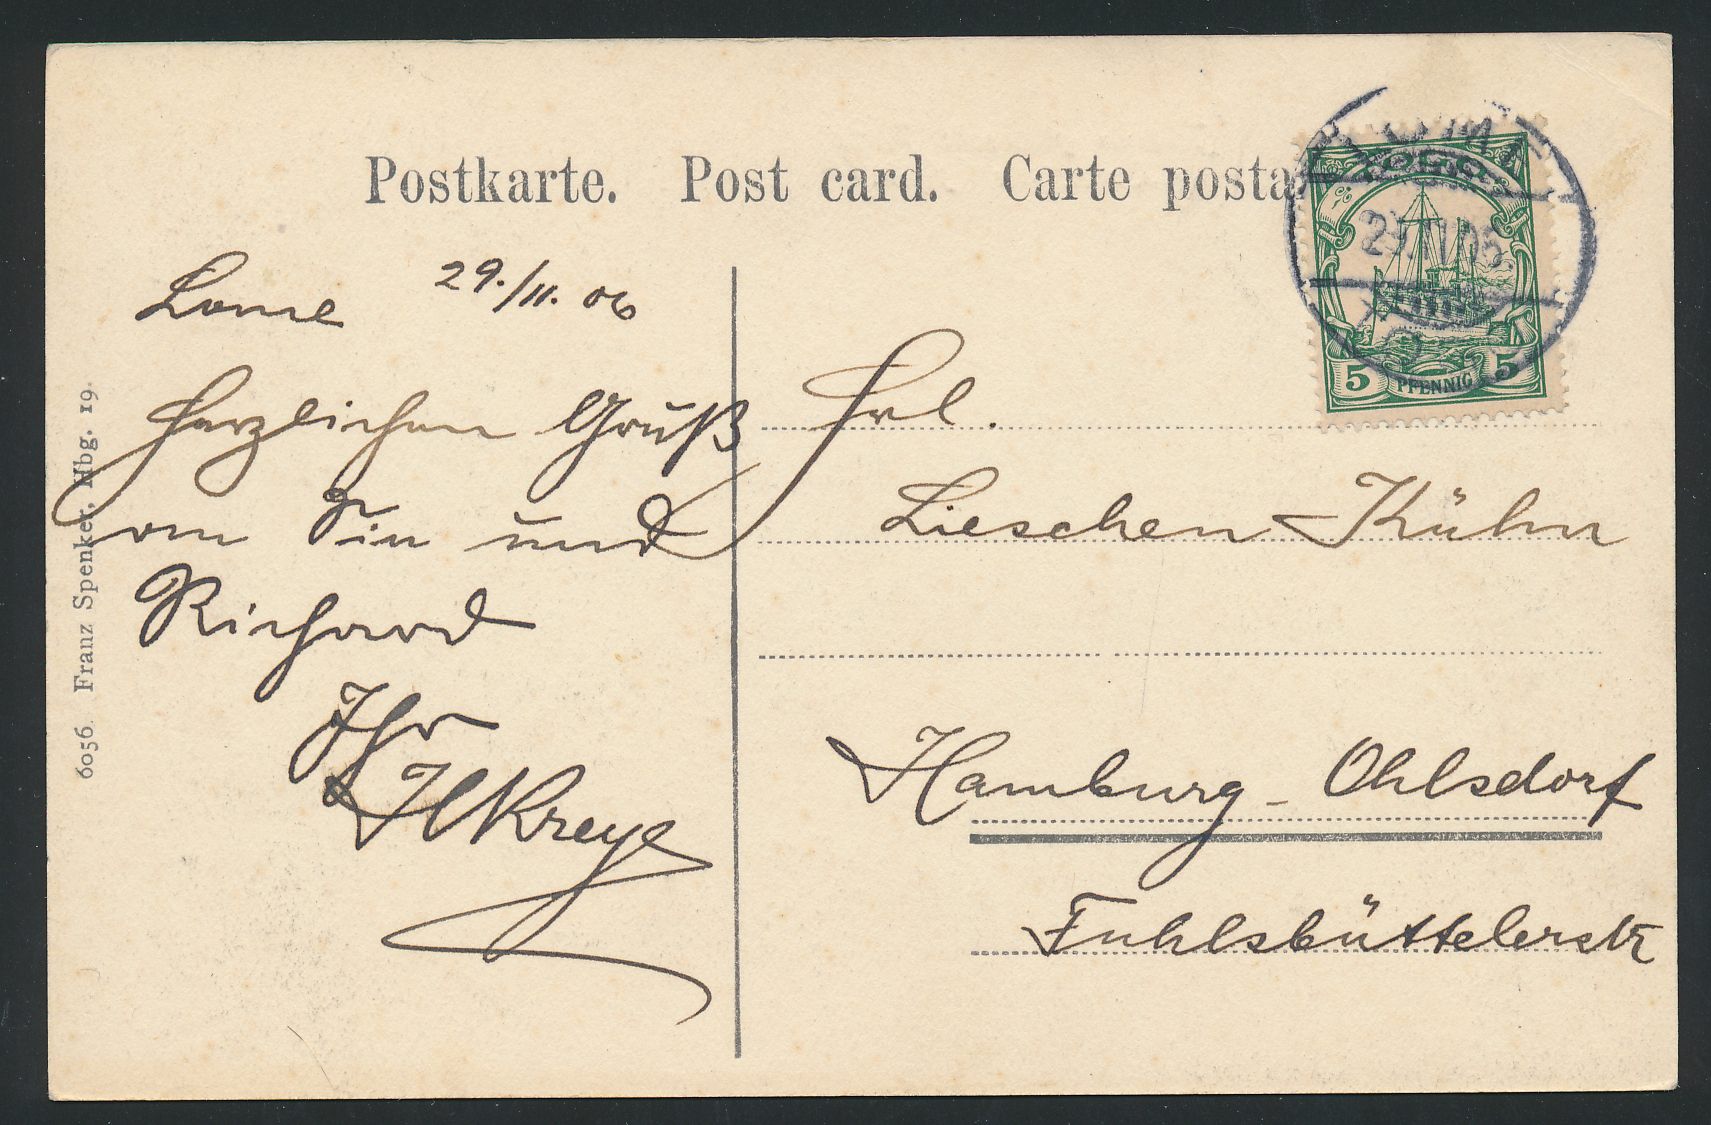 Postkarte. Post card. Carte posta
TOGO
5 PFENNIG 5
LOME
29.11.06
Lome 29./11. 06
Herzlichen Gruß
an Sie und
Richard
Ihr
HKreye
Frl.
Lieschen Kühn
Hamburg - Ohlsdorf
Fuhlsbüttelerstr
6056. Franz Spenker, Hbg. 19.